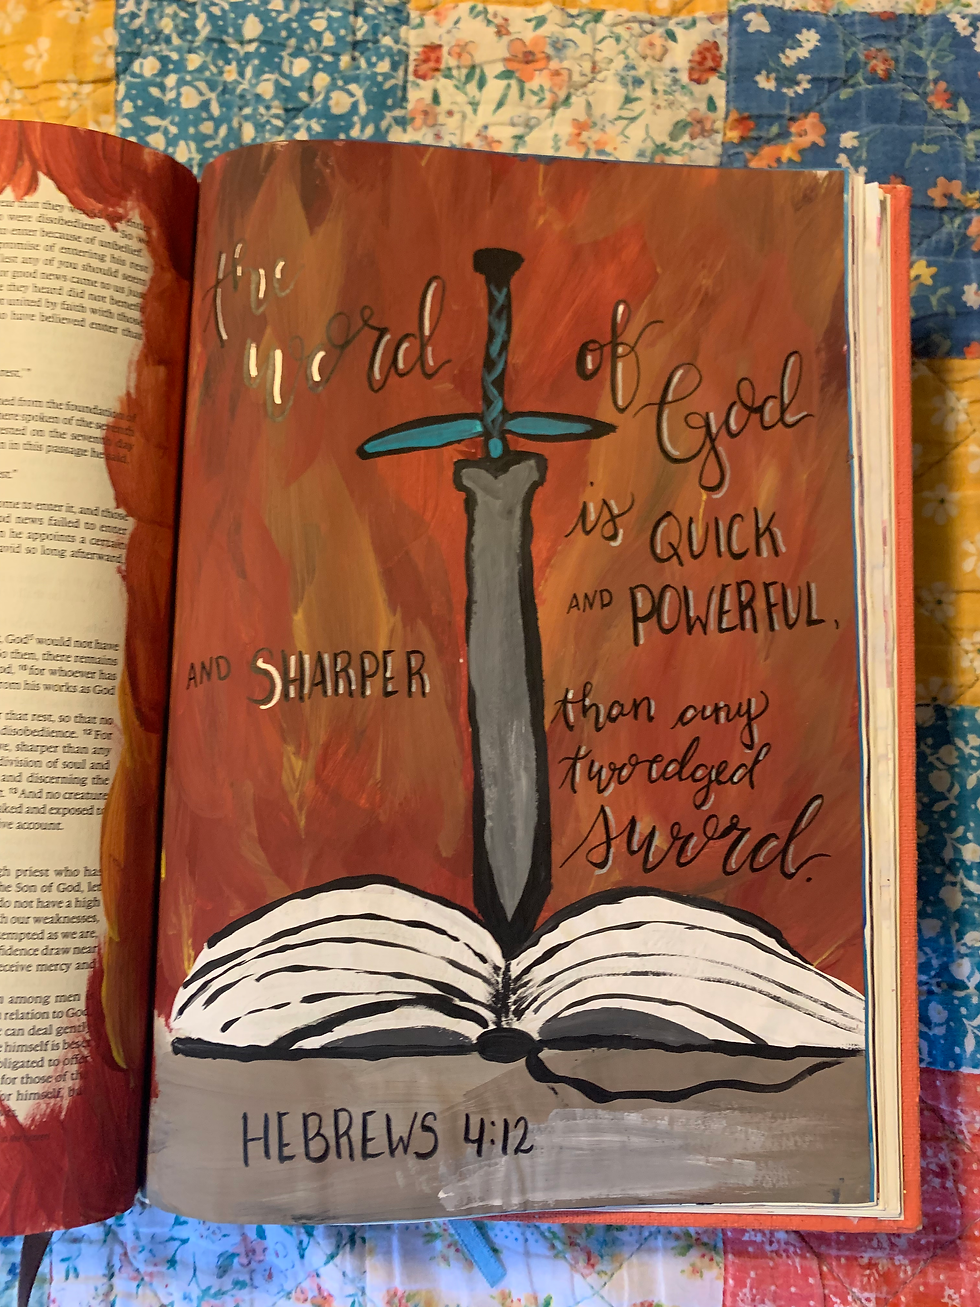 were disobedient?
enter because of unbelief.
promise of entering his rest
lest any of you should seem
good news came to us just
they heard did not benefit
united by faith with those
have believed enter that
rest,'"
from the foundation of
spoken of the seventh
on the seventh day
in this passage he said,
to enter it, and those
news failed to enter
he appoints a certain
so long afterward,
God would not have
then, there remains
for whoever has
from his works as God
that rest, so that no
disobedience. 12 For
sharper than any
division of soul and
and discerning the
13 And no creature
and exposed to
account.
priest who has
the Son of God, let
do not have a high
our weaknesses,
tempted as we are,
draw near
receive mercy and
among men
relation to God
can deal gently
himself is
to offer
for those of
for himself,
the
word of God
is QUICK
AND POWERFUL,
AND SHARPER
than any
twoedged
sword.
HEBREWS 4:12